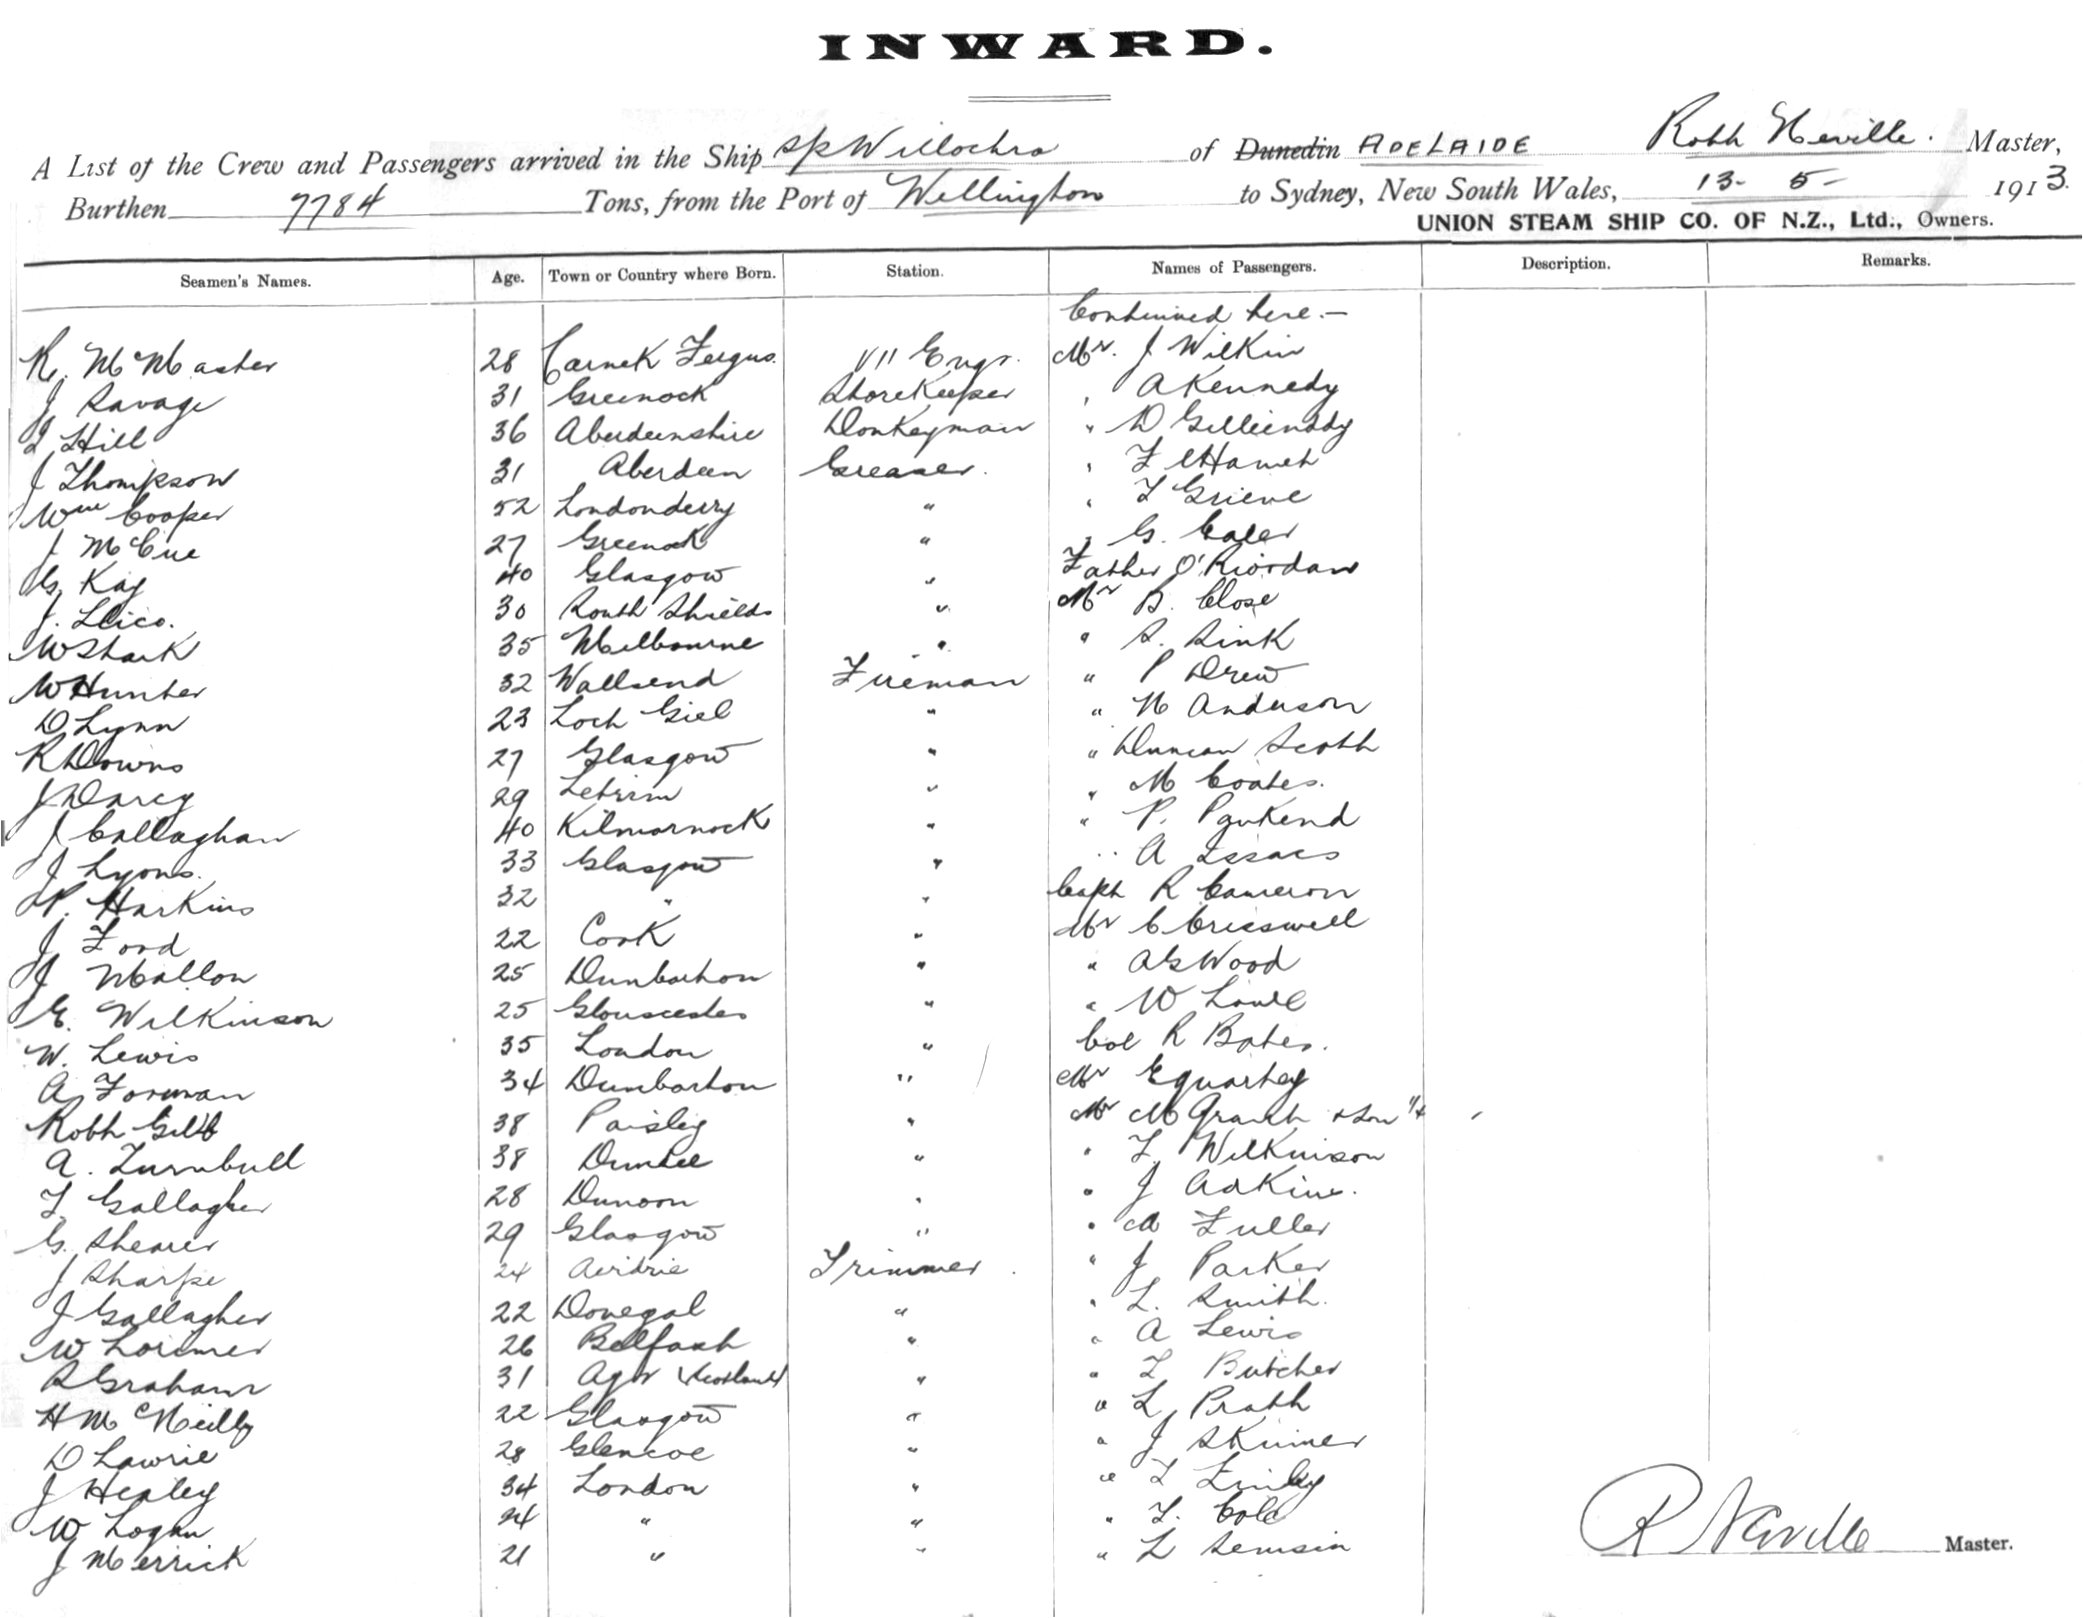 INWARD.
A List of the Crew and Passengers arrived in the Ship Willochra of Dunedin ADELAIDE Robt Neville. Master,
Burthen 7784 Tons, from the Port of Wellington to Sydney, New South Wales, 13- 5- 1913.
UNION STEAM SHIP CO. OF N.Z., Ltd., Owners.
Seamen's Names. Age. Town or Country where Born. Station. Names of Passengers. Description. Remarks.
Continued here.—
R. McMaster 28 Carrick Fergus. VII Engr. Mr. J Wilkin
J Savage 31 Greenock Storekeeper " A Kennedy
Hill 36 Aberdeenshire Donkeyman " D
J Thompson 31 Aberdeen Greaser. "
Wm Cooper 52 Londonderry " " Grieve
J McCue 27 Greenock " " G.
G. Kay 40 Glasgow " Father O'Riordan
J. 30 South Shields " Mr B. Close
W Stark 35 Melbourne " " S. Sink
W Hunter 32 Wallsend Fireman " P Drew
D Lynn 23 Loch " " N Anderson
R Downs 27 Glasgow " " Duncan Scott
J Darcy 29 Letrim " " M Coates.
J Callaghan 40 Kilmarnock " " P.
J Lyons. 33 Glasgow " " A Issacs
P. Harkins 32 " " Capt R Cameron
J Ford 22 Cork " Mr C Crisswell
J Mallon 25 Dunbarton " " A G Wood
E. Wilkinson 25 Gloucester " " W Lowe
W. Lewis 35 London " Col R Bates.
A Forman 34 Dumbarton " Mr E Quartey
Robt 38 Paisley " Mr M & Son
A. Turnbull 38 Dundee " " Wilkinson
Gallagher 28 Dunoon " " J Adkins.
G. Shearer 29 Glasgow " " Fuller
J Sharpe 24 Airdrie Trimmer. " J Parker
J Gallagher 22 Donegal " " L. Smith.
W Lorimer 26 Belfast " " A Lewis
Graham 31 Scotland " " Butcher
H McNeilly 22 Glasgow " " L Pratt
D Lawrie 28 Glencoe " " J Skinner
J Healey 34 London " "
W Logan 24 " " " Cole
J Merrick 21 " " " L
R Neville Master.